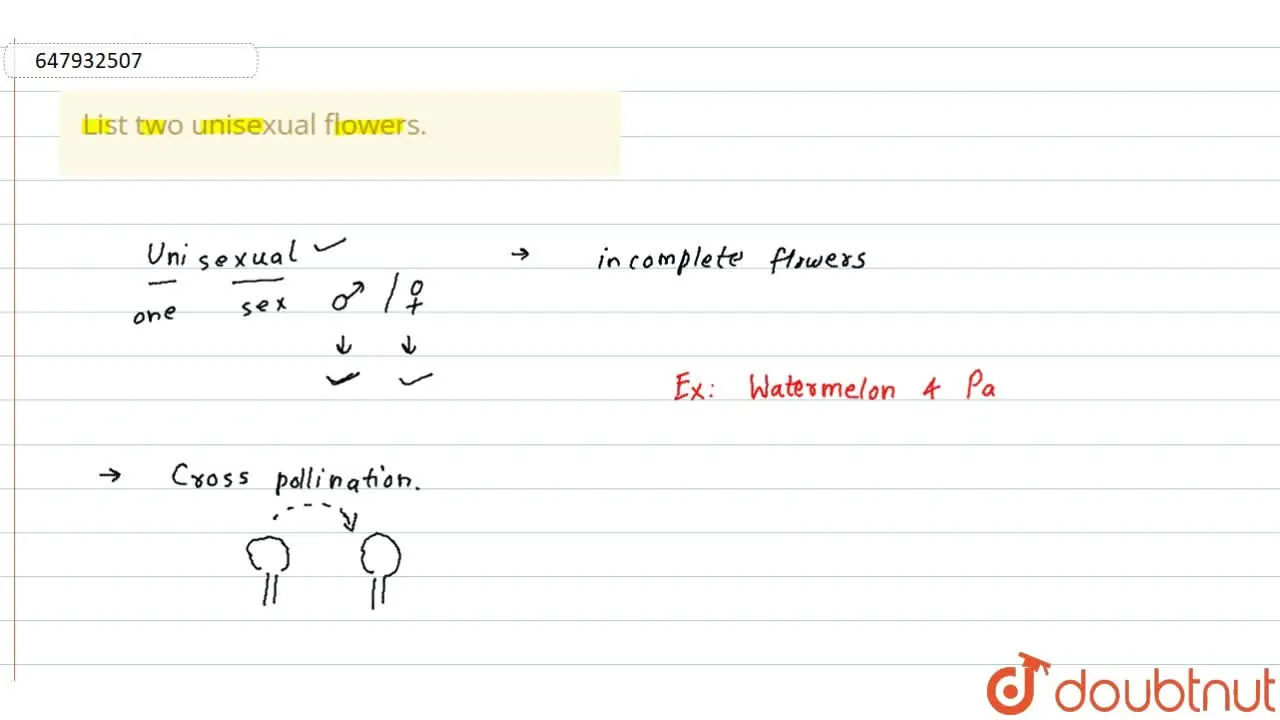 647932507
List two unisexual flowers.
Unisexual ✓ → incomplete flowers
one sex ♂ / ♀
↓ ↓
✓ ✓
Ex: Watermelon & Pa
→ Cross pollination.
doubtnut